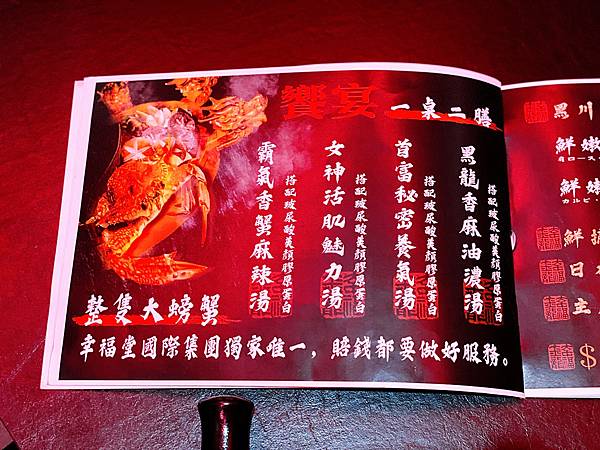 饗宴 一桌二膳
黑龍香麻油濃湯
搭配玻尿酸美顏膠原蛋白
首富秘密養氣湯
搭配玻尿酸美顏膠原蛋白
女神活肌魅力湯
搭配玻尿酸美顏膠原蛋白
霸氣香蟹麻辣湯
搭配玻尿酸美顏膠原蛋白
整隻大螃蟹
幸福堂國際集團獨家唯一，賠錢都要做好服務。
黑川
鮮嫩
肩ロース
鮮嫩
カルビ・
鮮
日
主
$